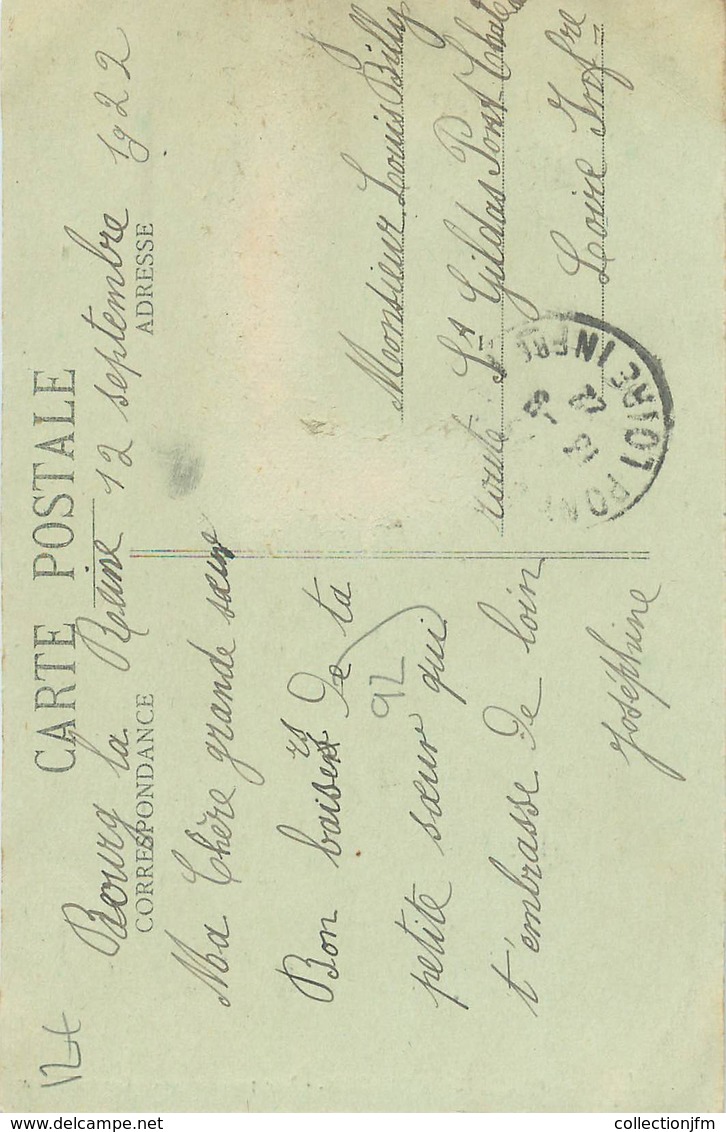 CARTE POSTALE
Bourg la Reine 12 septembre 1922
CORRESPONDANCE
ADRESSE
Ma Chère grande sœur
Bon baisers de ta
petite sœur qui
t'embrasse de loin
Joséphine
92
Monsieur Louis Billy
route St Gildas Pont Chat
Loire Infre
LOIRE INFRE
collectionjfm